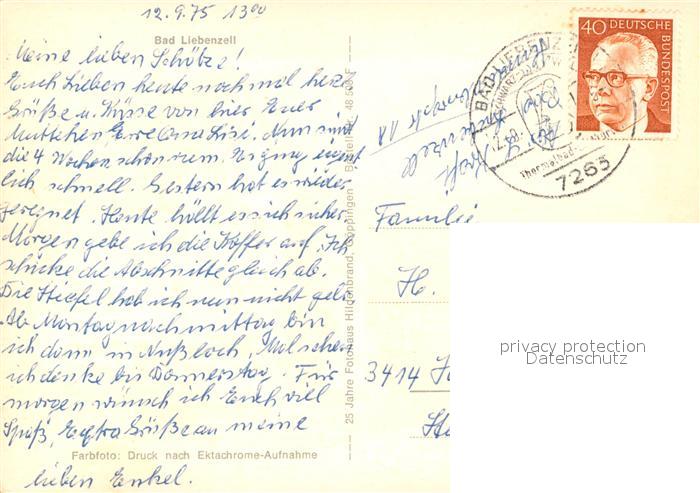 12.9.75 13⁰⁰
Bad Liebenzell
Meine lieben Schätze!
Euch Lieben heute nochmal herz.
Grüße u. Küsse von hier Euer
Muttchen, Eure Oma Lisi. Nun sind
die 4 Wochen schon rum. Es ging eigent
lich schnell. Gestern hat es wieder
geregnet. Heute hällt es sich sicher.
Morgen gebe ich die Koffer auf. Ich
schicke die Abschnitte gleich ab.
Die Stiefel hab ich nun nicht gebr.
Ab Montag nachmittag bin
ich dann in Nußloch, Mal sehen
ich denke bis Donnerstag. Für
morgen wünsch ich Euch viel
Spaß, Extra Grüße an meine
lieben Enkel.
Farbfoto: Druck nach Ektachrome-Aufnahme
25 Jahre Fotohaus Hildenbrand, Göppingen
40 DEUTSCHE BUNDESPOST
BAD LIEBENZELL
Thermalbad
7265
Familie
H.
3414
privacy protection
Datenschutz